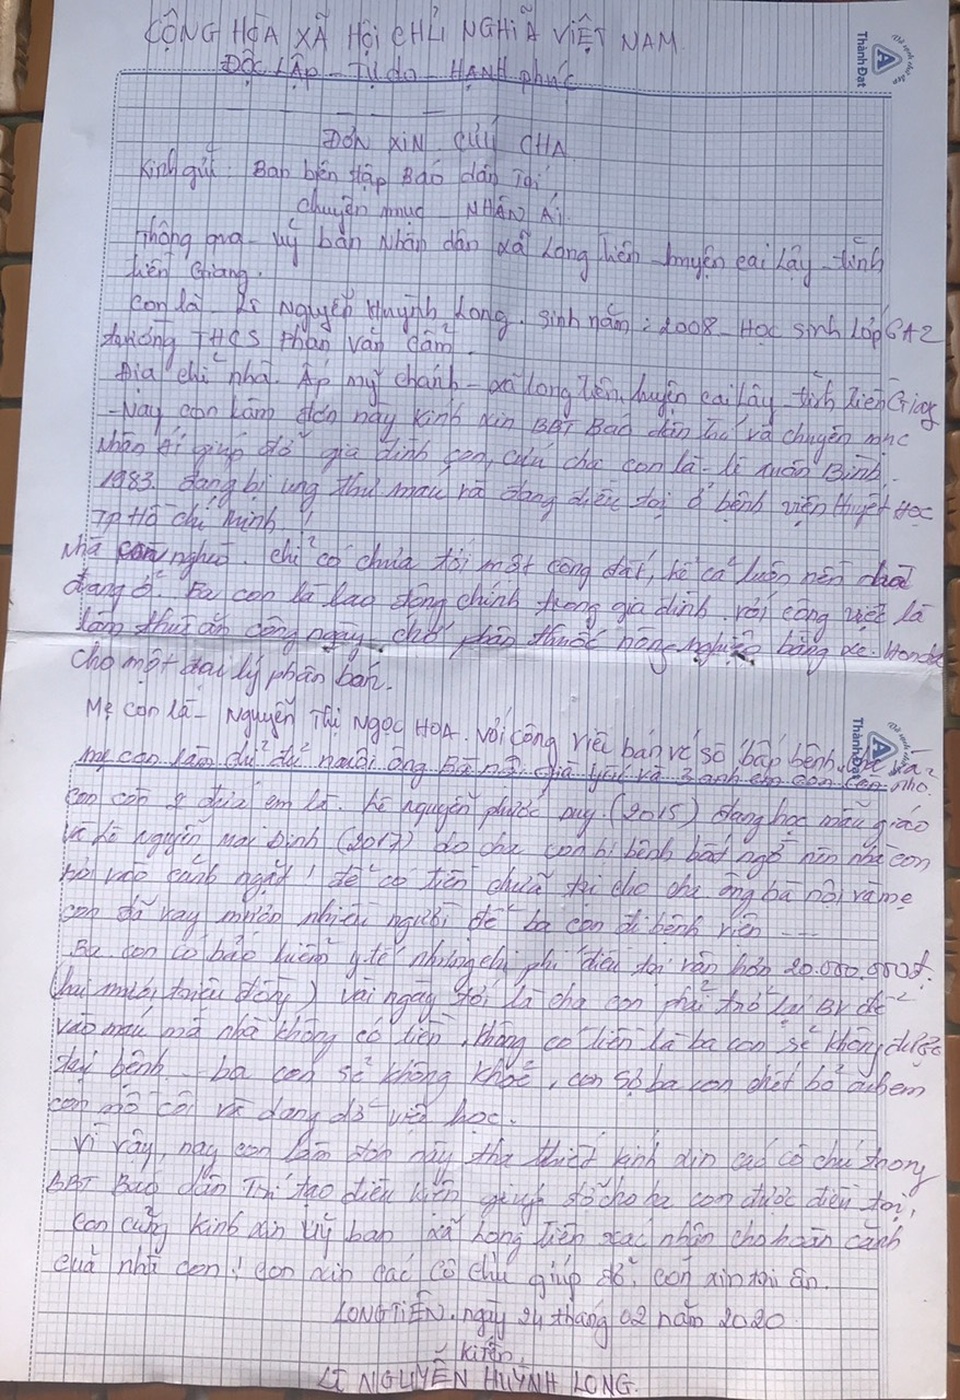 CỘNG HÒA XÃ HỘI CHỦ NGHĨA VIỆT NAM
ĐỘC LẬP - Tự do - HẠNH phúc
Thành Đạt
ĐƠN XIN CỨU CHA
Kính gửi: Ban biên tập Báo dân Trí
chuyên mục NHÂN ÁI
Thông qua - uỷ ban nhân dân xã Long Tiên - huyện cai lậy - tỉnh
tiền Giang.
Con là - Lê Nguyễn Huỳnh Long. sinh năm: 2008 - Học sinh lớp 6A2
trường THCS Phan văn cẩm.
Địa chỉ nhà. Ấp mỹ chánh - xã long Tiên, huyện cai lậy - tỉnh Tiền Giang
- Nay con làm đơn này kính xin BBT Báo dân Trí và chuyên mục
nhân ái giúp đỡ gia đình con, cứu cha con là - lê xuân Bình,
1983. đang bị ung thư máu và đang điều trị ở bệnh viện Huyết Học
TP Hồ chí minh!
Nhà con nghèo. chỉ có chưa tới một công đất, kể cả luôn nền nhà
đang ở. Ba con là lao động chính trong gia đình. với công việc là
làm thuê ăn công ngày chở phân thuốc nông nghiệp bằng xe Honda
cho một đại lý phân bán.
Mẹ con là - Nguyễn Thị Ngọc HOA. với công việc bán vé số bấp bênh. và
Thành Đạt
mẹ con làm đủ nuôi ông Bà nội già yếu và 3 anh em con còn nhỏ.
con còn 2 đứa em là. Lê nguyễn phước duy (2015) đang học mẫu giáo
và Lê nguyễn mai Định (2017) do cha con bị bệnh bất ngờ nên nhà con
rơi vào cảnh ngặt! để có tiền chữa trị cho cha ông bà nội và mẹ
con đã vay mượn nhiều người để ba con đi bệnh viện ---
Ba con có bảo hiểm y tế nhưng chi phí điều trị vẫn hơn 20.000.000đ.
(hai mươi triệu đồng) vài ngày tới là cha con phải trở lại BV để
vào máu mà nhà không có tiền, không có tiền là ba con sẽ không được
trị bệnh - ba con sẽ không khỏe, con sợ ba con chết bỏ anh em
con mồ côi và dang dở việc học.
Vì vậy, nay con làm đơn này tha thiết kính xin các cô chú trong
BBT Báo dân Trí tạo điều kiện giúp đỡ cho ba con được điều trị,
con cũng kính xin Uỷ ban xã Long Tiên xác nhận cho hoàn cảnh
của nhà con! con xin các cô chú giúp đỡ, con xin tri ân.
LONG TIÊN, ngày 24 tháng 02 năm 2020
kí tên
LÊ NGUYỄN HUỲNH LONG